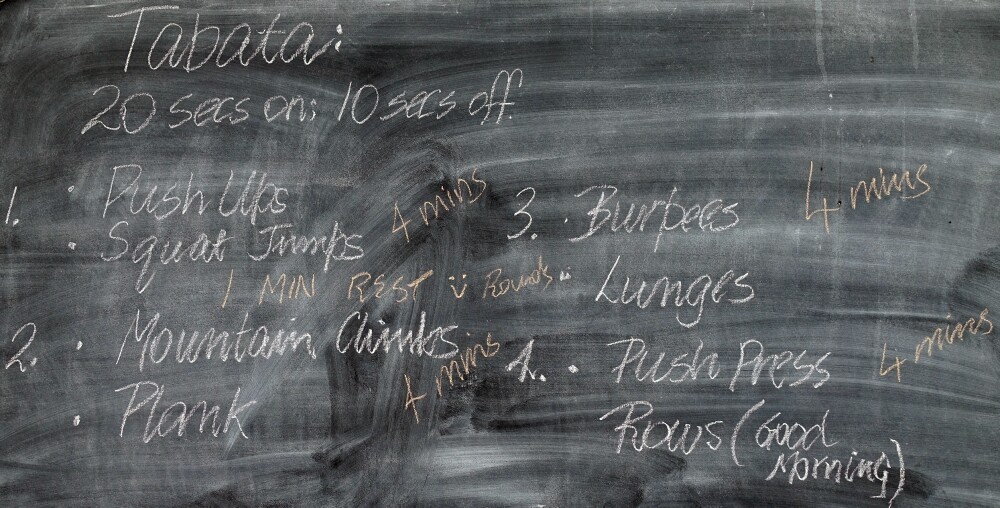 Tabata:
20 secs on: 10 secs off
1. · Push Ups
· Squat Jumps 4 mins
1 MIN REST Rounds
2. · Mountain Climbs
· Plank 4 mins
3. · Burpees 4 mins
· Lunges
4. · Push Press 4 mins
Rows (Good
Morning)